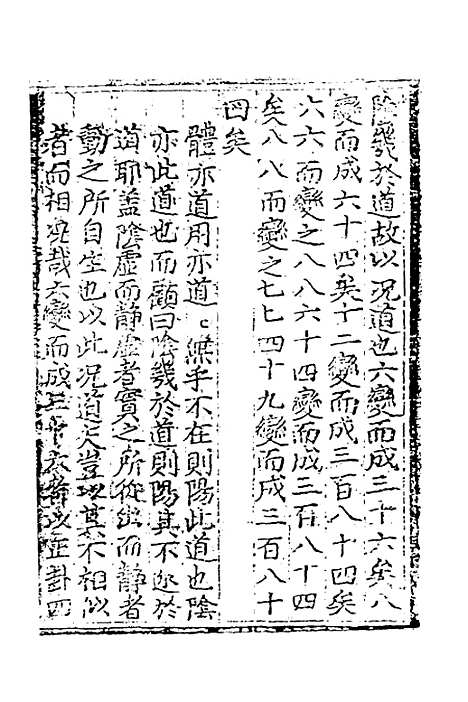 陰幾於道故以况道也六變而成三十六矣八
變而成六十四矣十二變而成三百八十四矣
六六而變之八八六十四變而成三百八十四
矣八八而變之七七四十九變而成三百八十
四矣
體亦道用亦道道無乎不在則陽此道也陰
亦此道也而顧曰陰幾於道則陽其不幾於
道耶盖陰虛而靜虛者實之所從出而靜者
動之所自生也以此况道夫豈以其不相似
者而相况哉六變而成三十六者以正卦四